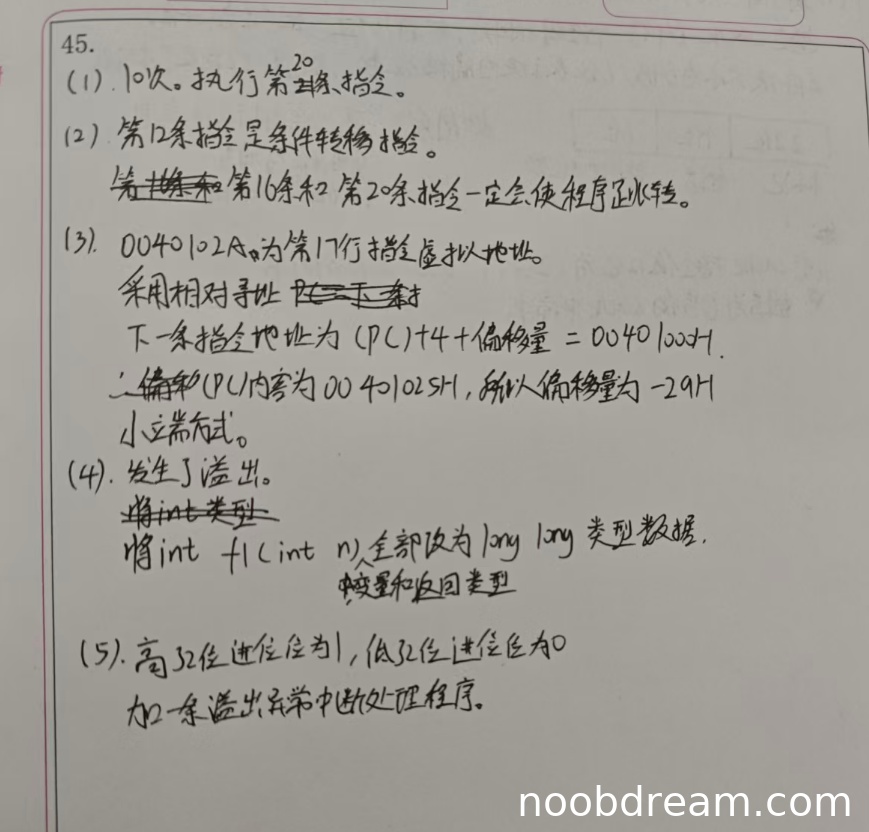 45.
(1) 10次。执行第20条指令。
(2) 第12条指令是条件转移指令。
第16条和第20条指令一定会使程序跳转。
(3). 0040102A,为第17行指令虚拟地址。
采用相对寻址
下一条指令地址为 (PC)+4+偏移量 = 00401000H.
∴(PC)内容为00401025H,所以偏移量为-29H
小端方式。
(4). 发生了溢出。
将int 类型
将int f1(int n)全部改为long long 类型数据.
中变量和返回类型
(5). 高32位进位位为1,低32位进位位为0
加一条溢出异常中断处理程序。
noobdream.com